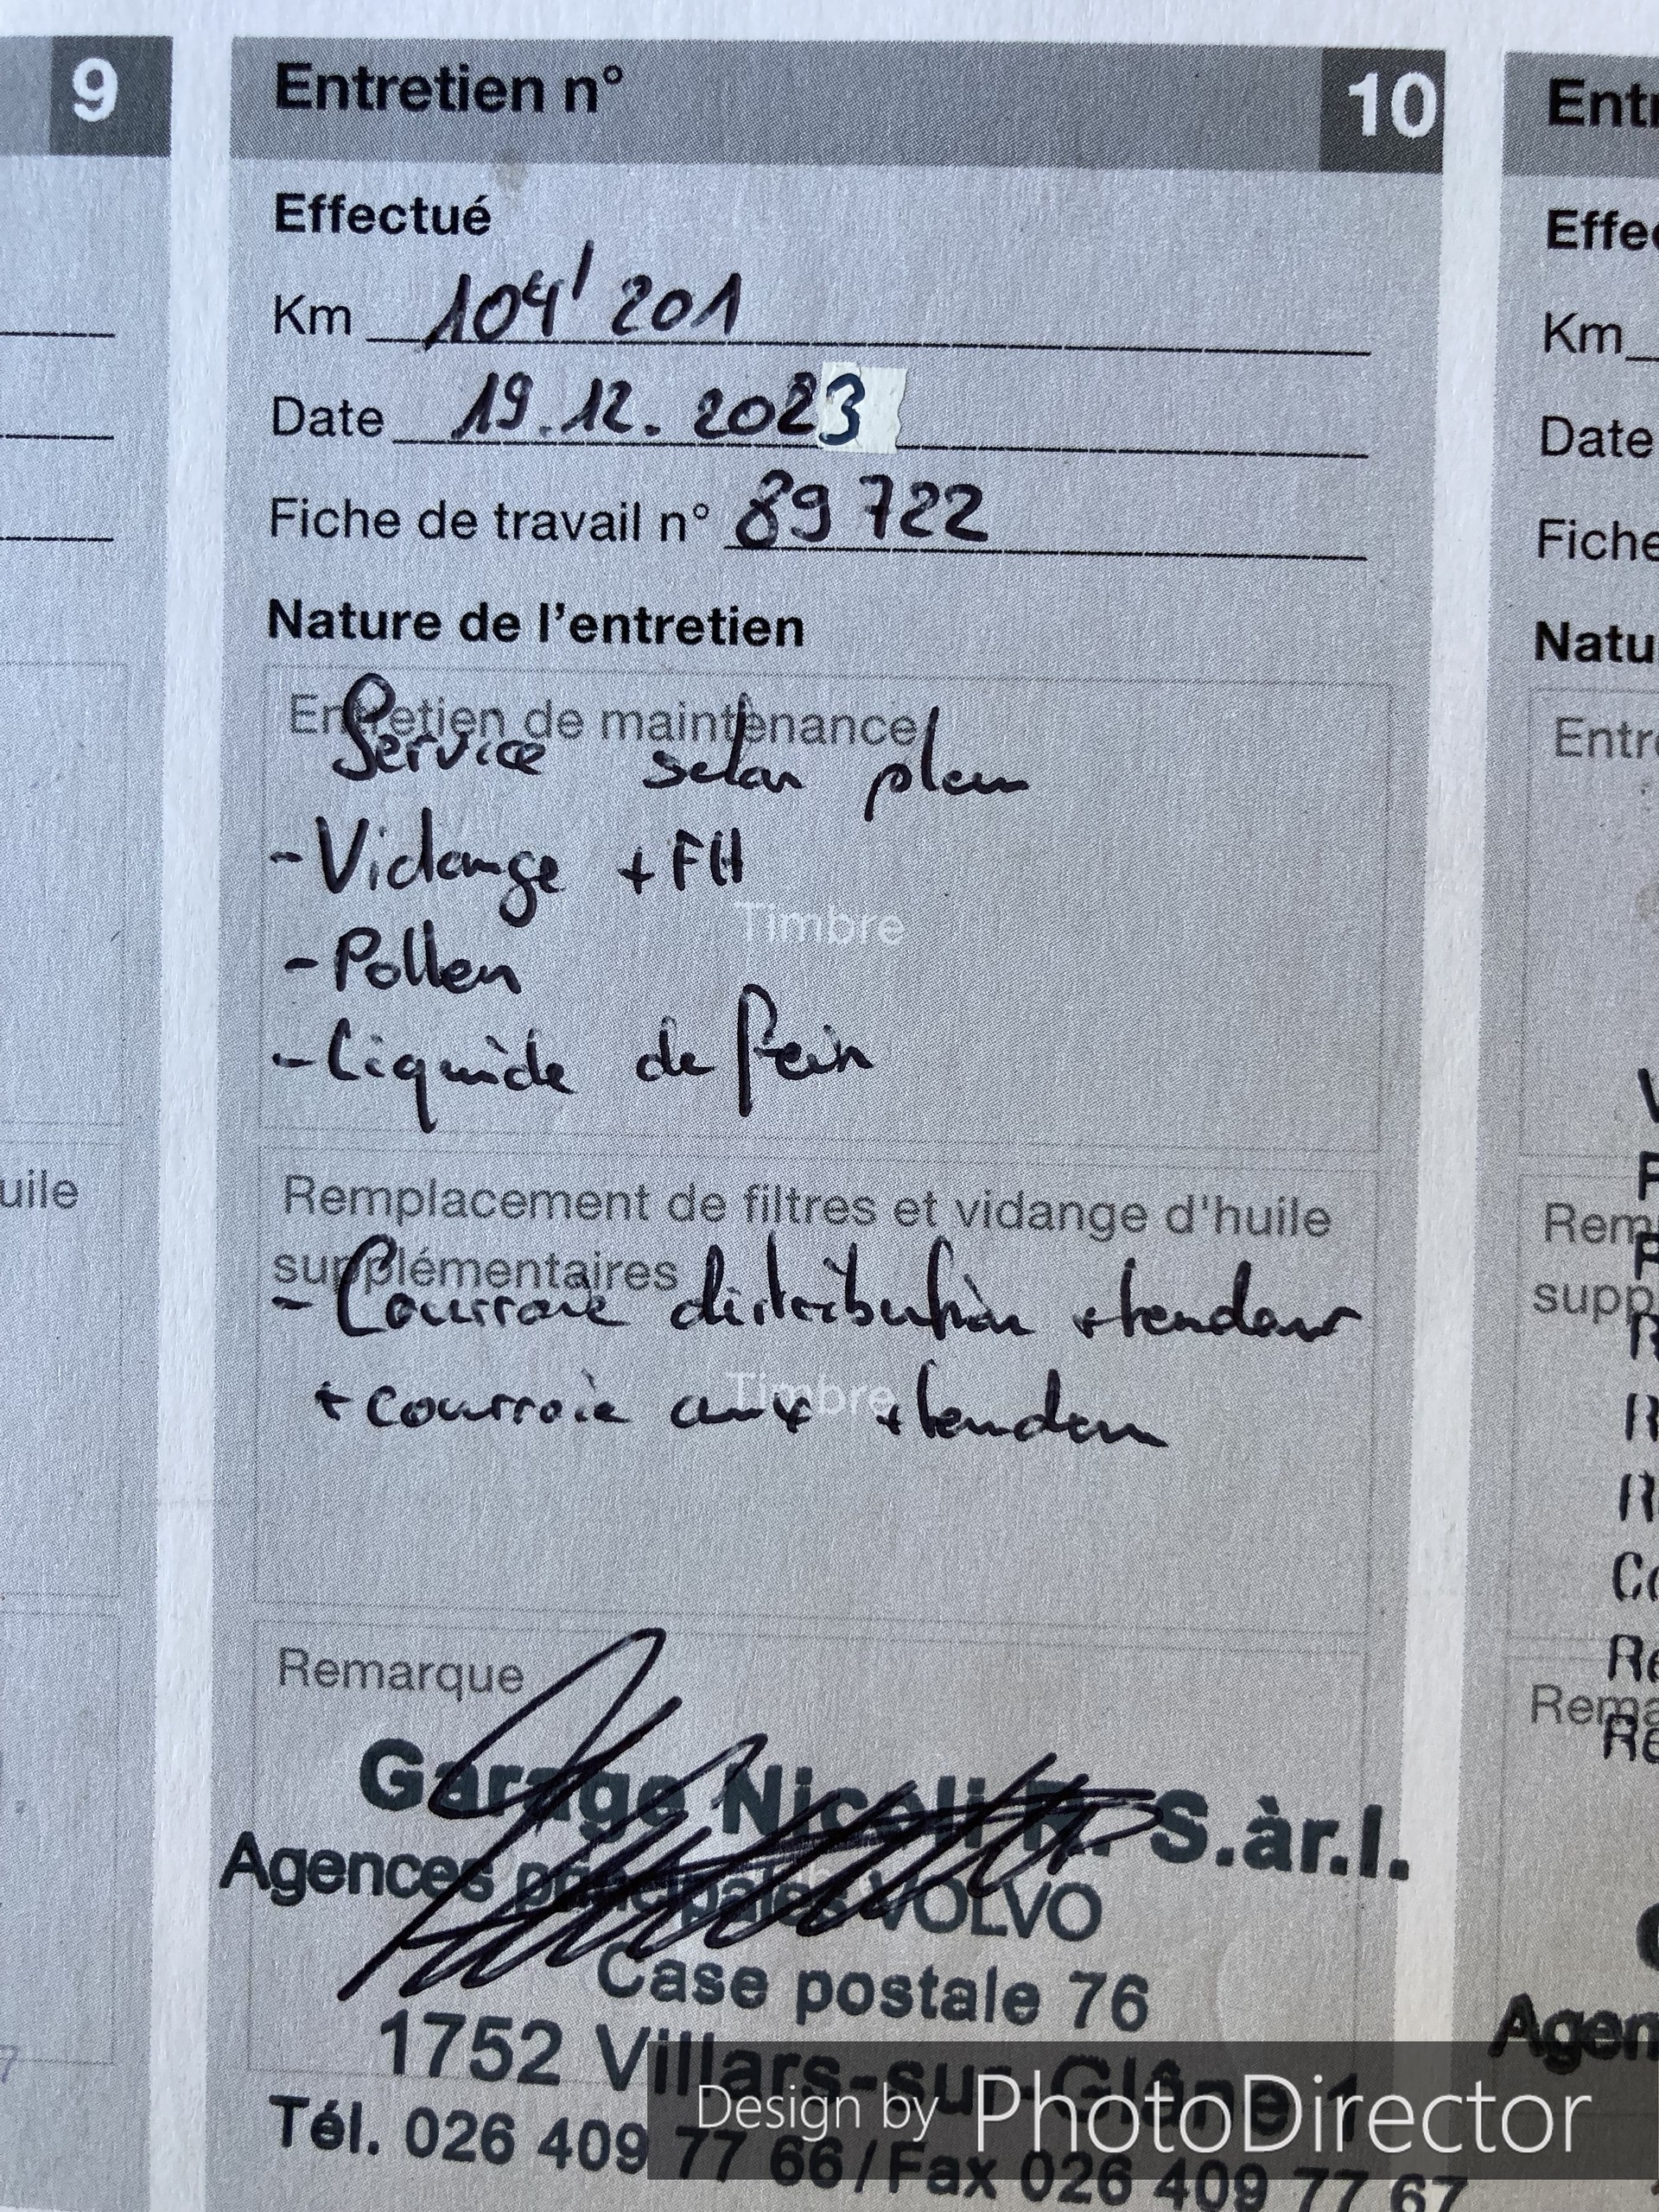 9
Entretien n° 10
Effectué
Km 104'201
Date 19.12.2023
Fiche de travail n° 89722
Nature de l'entretien
Entretien de maintenance
Service selon plan
- Vidange + FH
Timbre
- Pollen
- Liquide de frein
Remplacement de filtres et vidange d'huile
supplémentaires
- Courroie distribution + tendeur
+ courroie aux + tendeur
Timbre
Remarque
Garage Nicoli R. S.àr.l.
Agences principales VOLVO
Case postale 76
1752 Villars-sur-Glâne 1
Tél. 026 409 77 66/Fax 026 409 77 67
Design by PhotoDirector
uile
7
Entr
Effe
Km
Date
Fiche
Natu
Entr
Rem
supp
R
R
R
Co
Re
Rema
Re
Agen